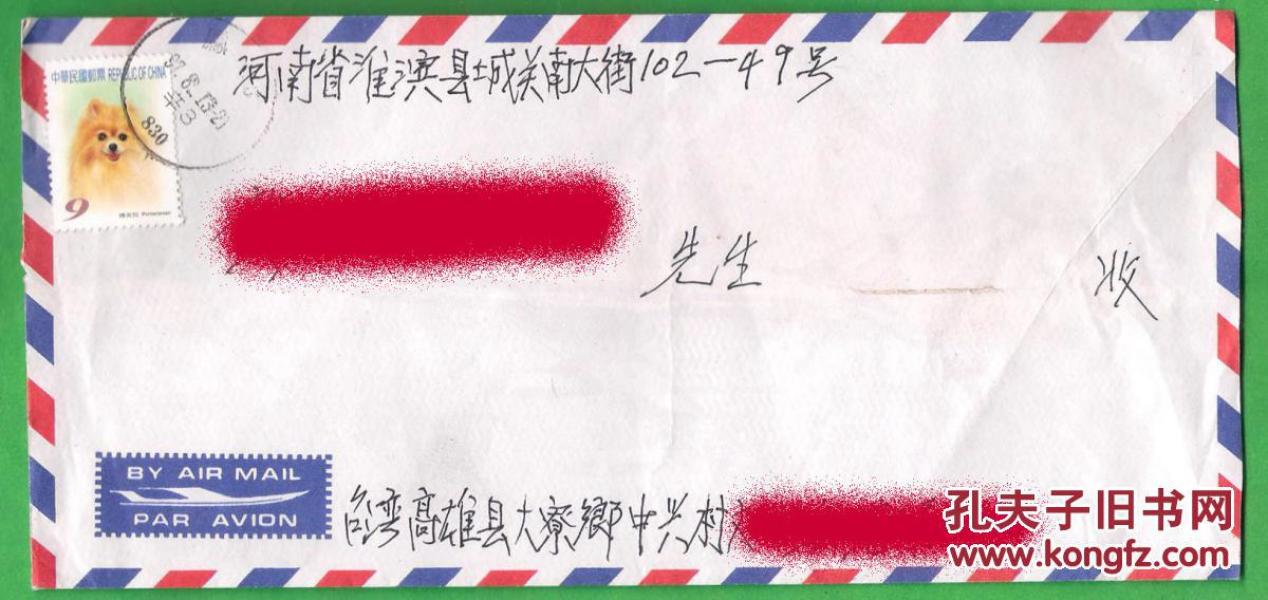 中華民國郵票 REPUBLIC OF CHINA
9
博美狗 Pomeranian
830
河南省淮滨县城关南大街102-49号
先生 收
BY AIR MAIL
PAR AVION
台湾高雄县大寮鄉中兴村
孔夫子旧书网
www.kongfz.com